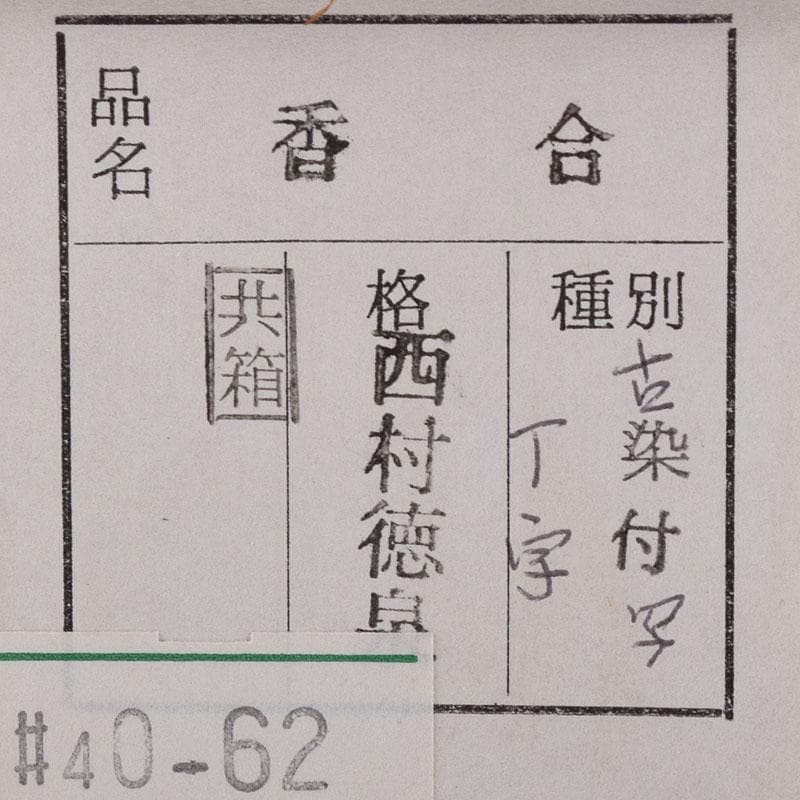 品名
香合
種別
古染付写
丁字
格
西村徳泉
共箱
#40-62